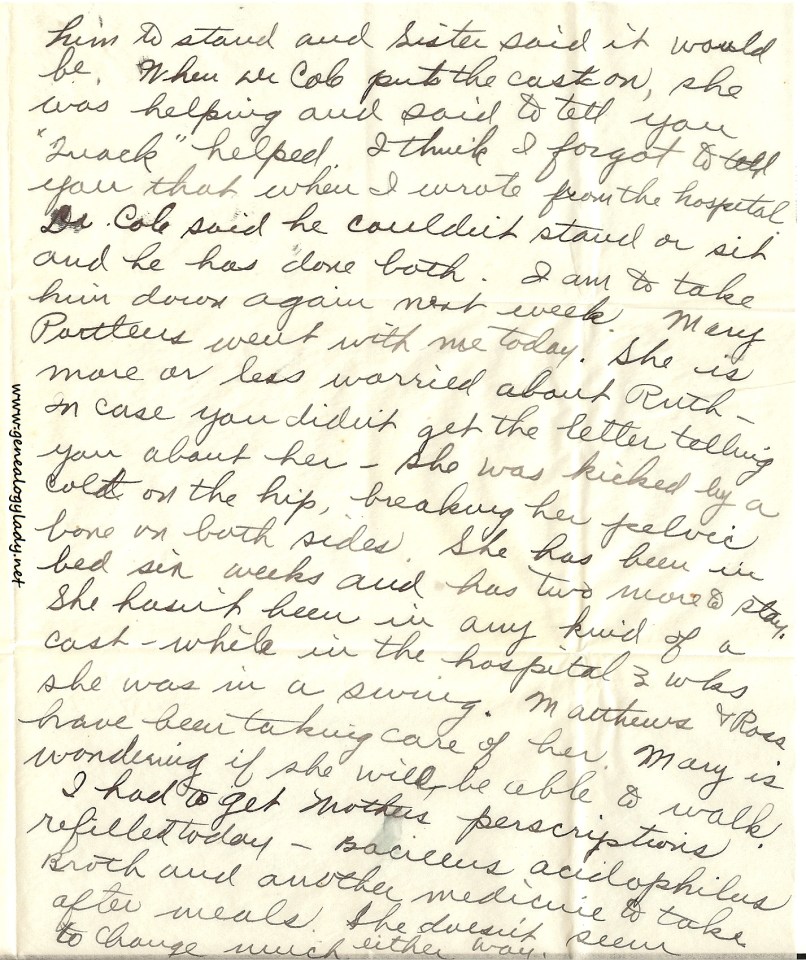 him to stand and Sister said it would
be. When Dr Cole put the cast on, she
was helping and said to tell you
"Quack" helped. I think I forgot to tell
you that when I wrote from the hospital
Dr. Cole said he couldn't stand or sit
and he has done both. I am to take
him down again next week. Mary
Portteus went with me today. She is
more or less worried about Ruth -
In case you didn't get the letter telling
you about her - She was kicked by a
colt on the hip, breaking her pelvic
bone on both sides. She has been in
bed six weeks and has two more to stay.
She hasn't been in any kind of a
cast - while in the hospital 3 wks
she was in a swing. Matthews & Ross
have been taking care of her. Mary is
wondering if she will be able to walk.
I had to get Mothers perscriptions
refilled today - Bacillus acidophilus
Broth and another medicine to take
after meals. She doesn't seem
to change much either way.
www.genealogylady.net